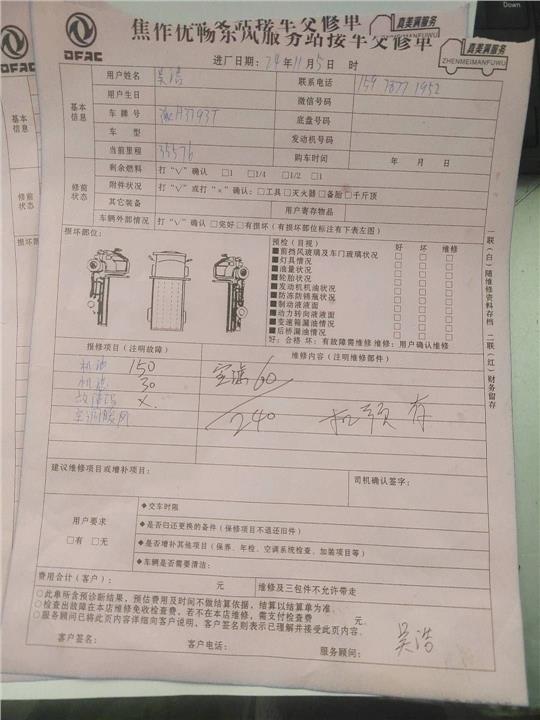 Down
焦作优畅东风服务站接车交修单
DFAC
真美满服务
ZHENMEIMANFUWU
进厂日期：24年11月5日 时
基本信息
用户姓名 吴浩 联系电话
用户生日 微信号码
车牌号 豫H3793T 底盘号码
车型 发动机号码
当前里程 35576 购车时间 年 月 日
修前状态
剩余燃料 打“√”确认 □1 □1/4 □1/2 □1
附件状况 打“√”或打“×”确认：□工具 □灭火器 □备胎 □千斤顶
其它装备 用户寄存物品
车辆外部情况 打“√”确认 □完好 □有损坏（有损坏部位标注有下表左图）
损坏部位：
预检（目视） 好 坏 维修
■前挡风玻璃及车门玻璃状况 □ □ □
■灯具情况 □ □ □
■油量状况 □ □ □
■轮胎状况 □ □ □
■发动机机油状况 □ □ □
■防冻防锈瓶状况 □ □ □
■制动液液面 □ □ □
■动力转向液液面 □ □ □
■变速箱漏油情况 □ □ □
■后桥漏油情况 □ □ □
好：合格 坏：有故障需维修 维修：用户确认维修
报修项目（注明故障） 维修内容（注明维修部件）
机油 150 空滤60
机滤 30
240 有
建议维修项目或增补项目： 司机确认签字：
用户要求
□有 □无
◆交车时限
◆是否归还更换的备件（保修项目不退还旧件）
◆是否增补其他项目（保养、年检、空调系统检查、加装项目等）
◆车辆是否需要清洁：
费用合计（客户）： 元 维修及三包件不允许带走
○此单所含预诊断结果，预估费用及时间不做结算依据，结算以结算单为准。
○检查出故障在本店维修免收检查费，若不在本店维修，需支付检查费 元。
○服务顾问已将此页内容详细向客户说明，客户签名则表示已理解并接受此页内容。
客户签名： 客户电话： 服务顾问： 吴浩
一联（白）随维修资料存档 二联（红）财务留存